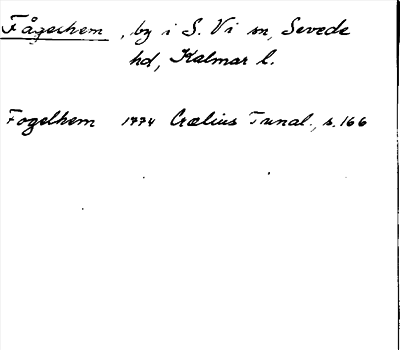 Fågerhem, by i S. Vi sn, Sevede
hd, Kalmar l.
Fogelhem 1774 Crælius Tunal., s. 166